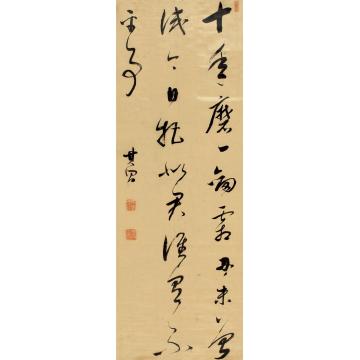 十年磨一劍霜刃未曾
試今日把似君誰為不
平事
其昌